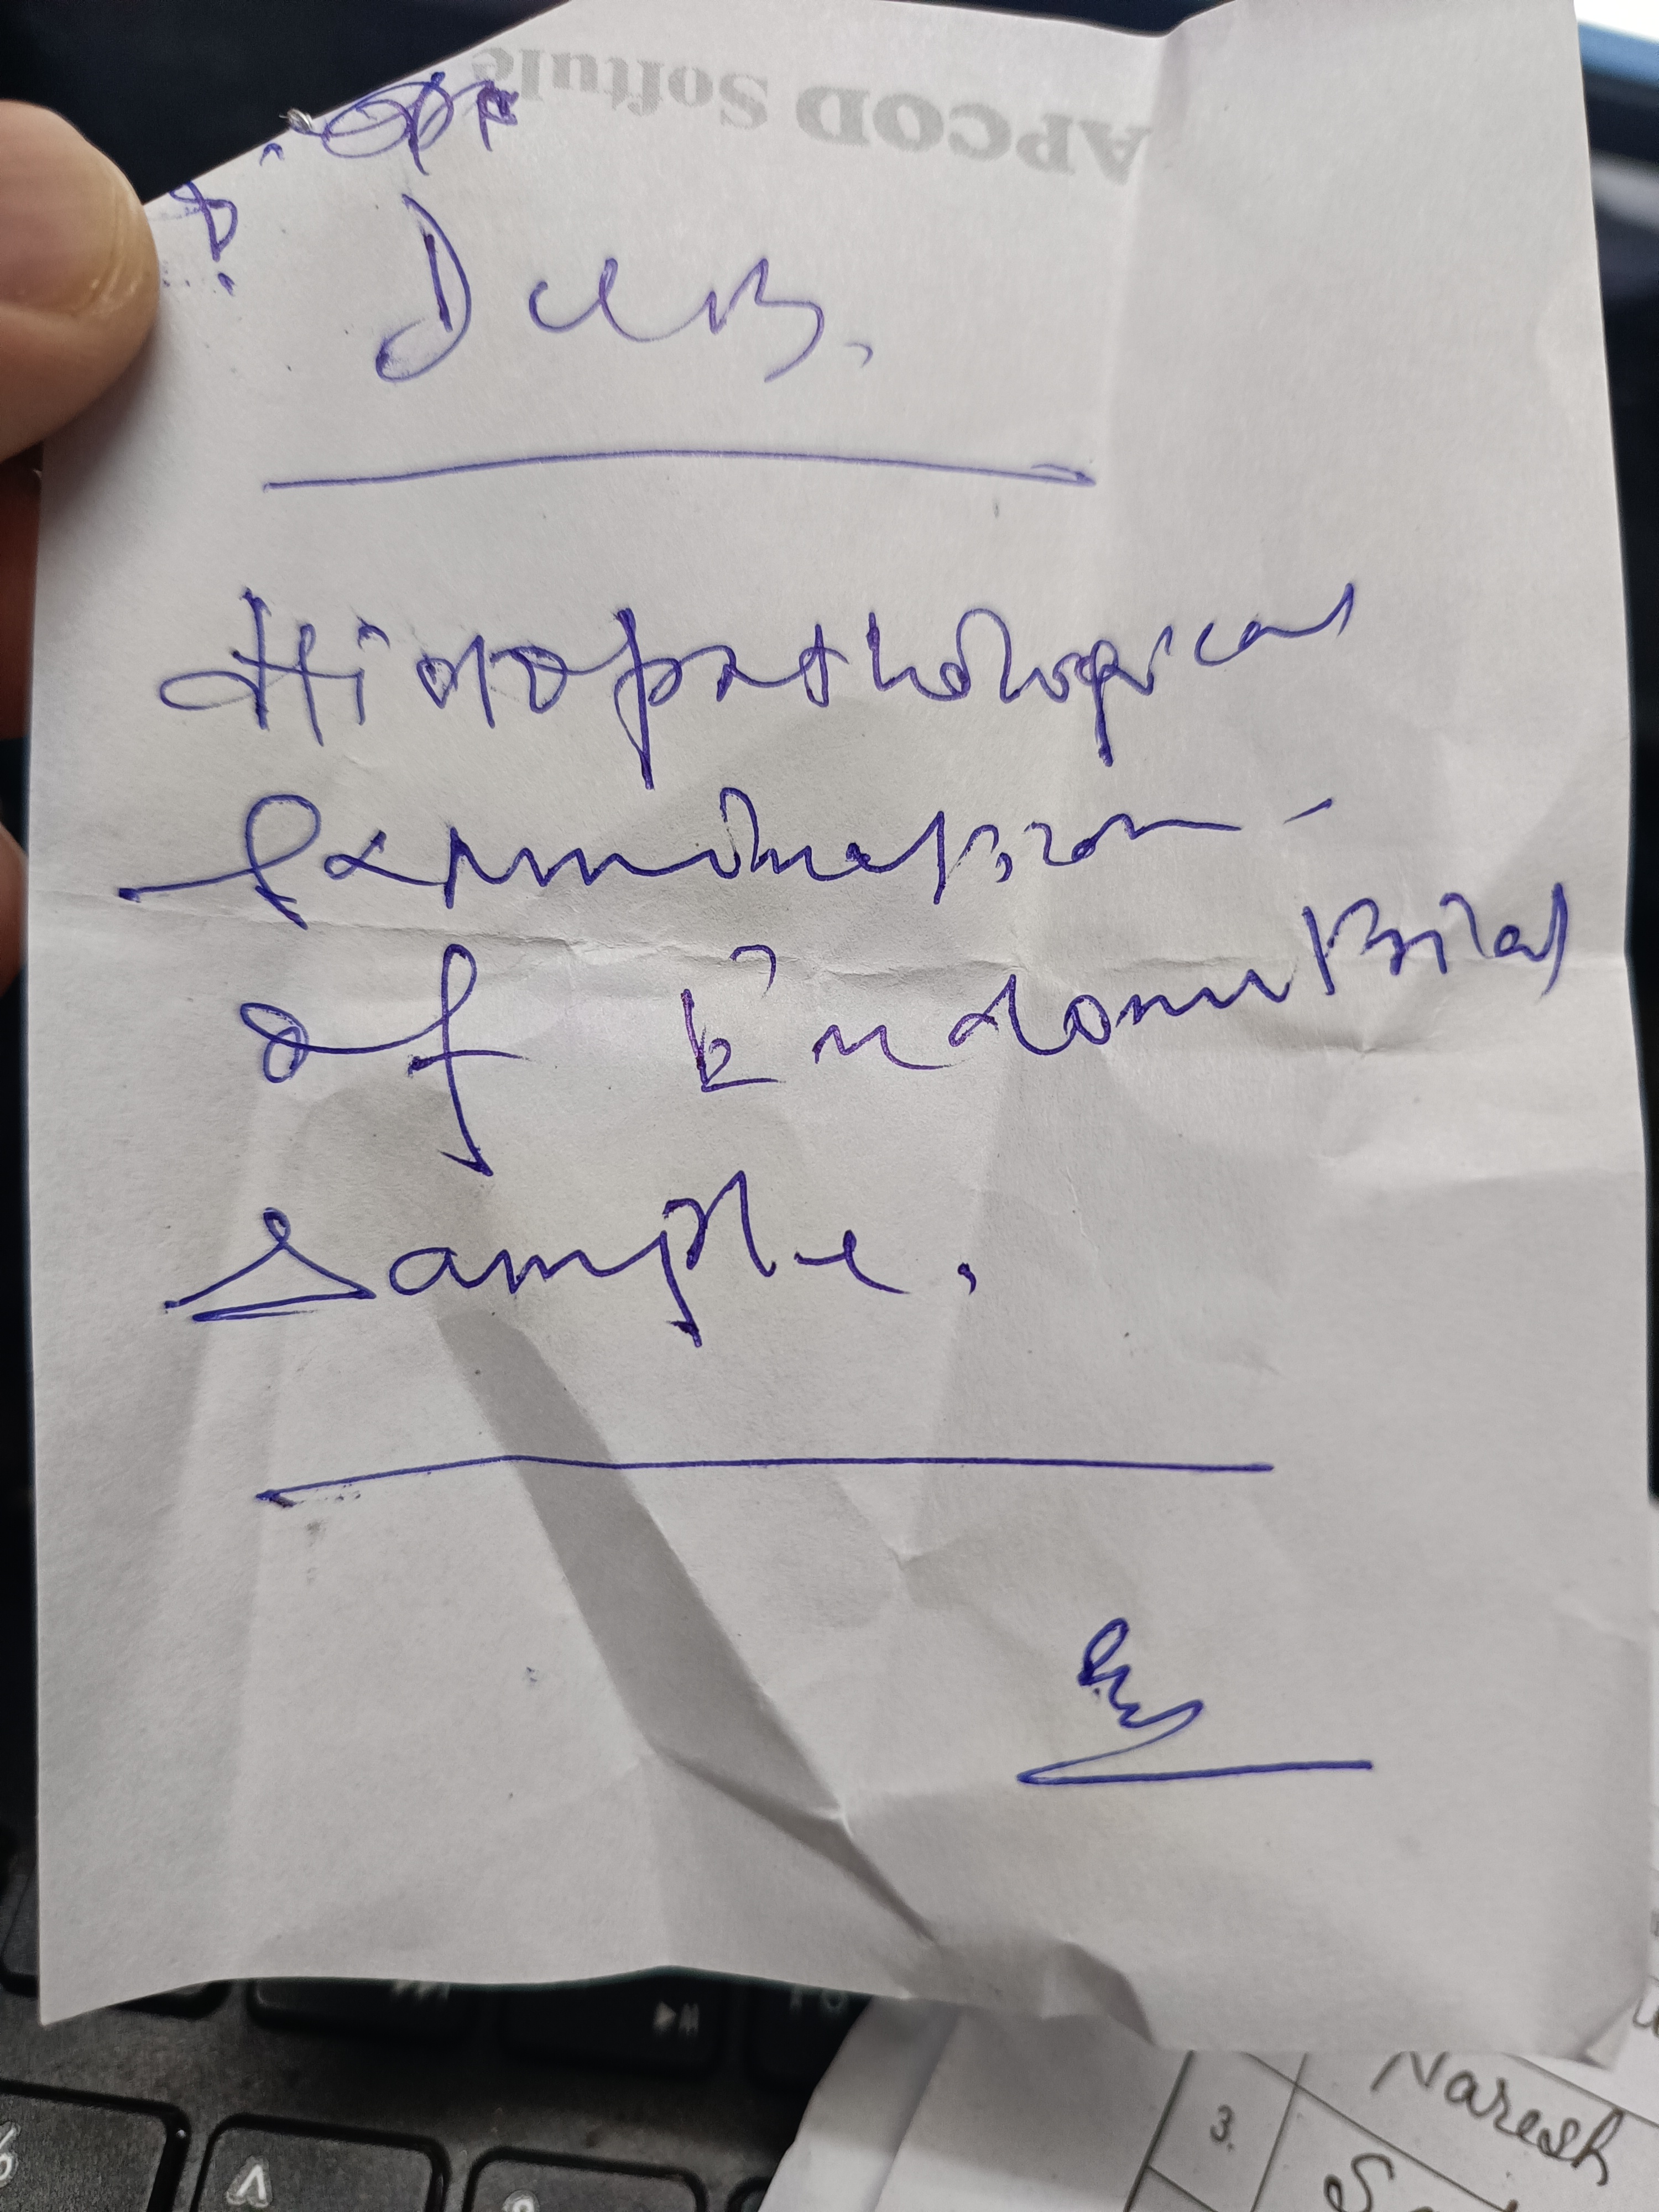 APCOD Softule
DUB.
Histopathological
Examination
of Endometrial
Sample.
3.
Naresh